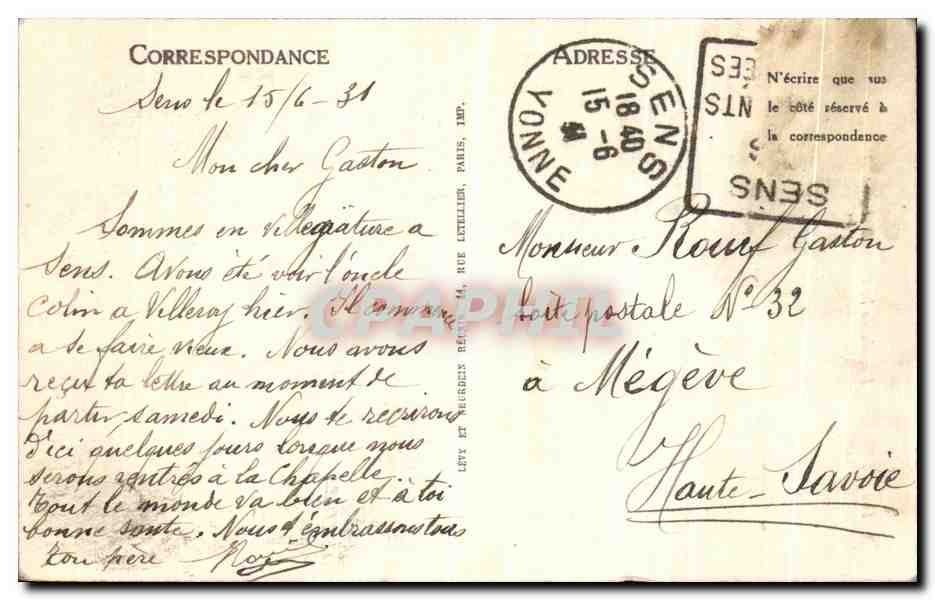 CORRESPONDANCE
Sens le 15/6-31
Mon cher Gaston
Sommes en Villegiature a
Sens. Avons été voir l'oncle
Colin a Villeroy hier. Il commence
a se faire vieux. Nous avons
reçu ta lettre au moment de
partir samedi. Nous te recrirons
d'ici quelques jours lorsque nous
serons rentrés à la Chapelle.
Tout le monde va bien et à toi
bonne santé. Nous t'embrassons tous
ton père
LÉVY ET NEURDEIN RÉUNIS, 44, RUE LETELLIER, PARIS, IMP.
ADRESSE
SENS
18 40
15 -6
31
YONNE
SENS
N'écrire que sur
le côté réservé à
la correspondance
Monsieur Rouif Gaston
boite postale N° 32
à Mégève
Haute-Savoie
CPAPHIL